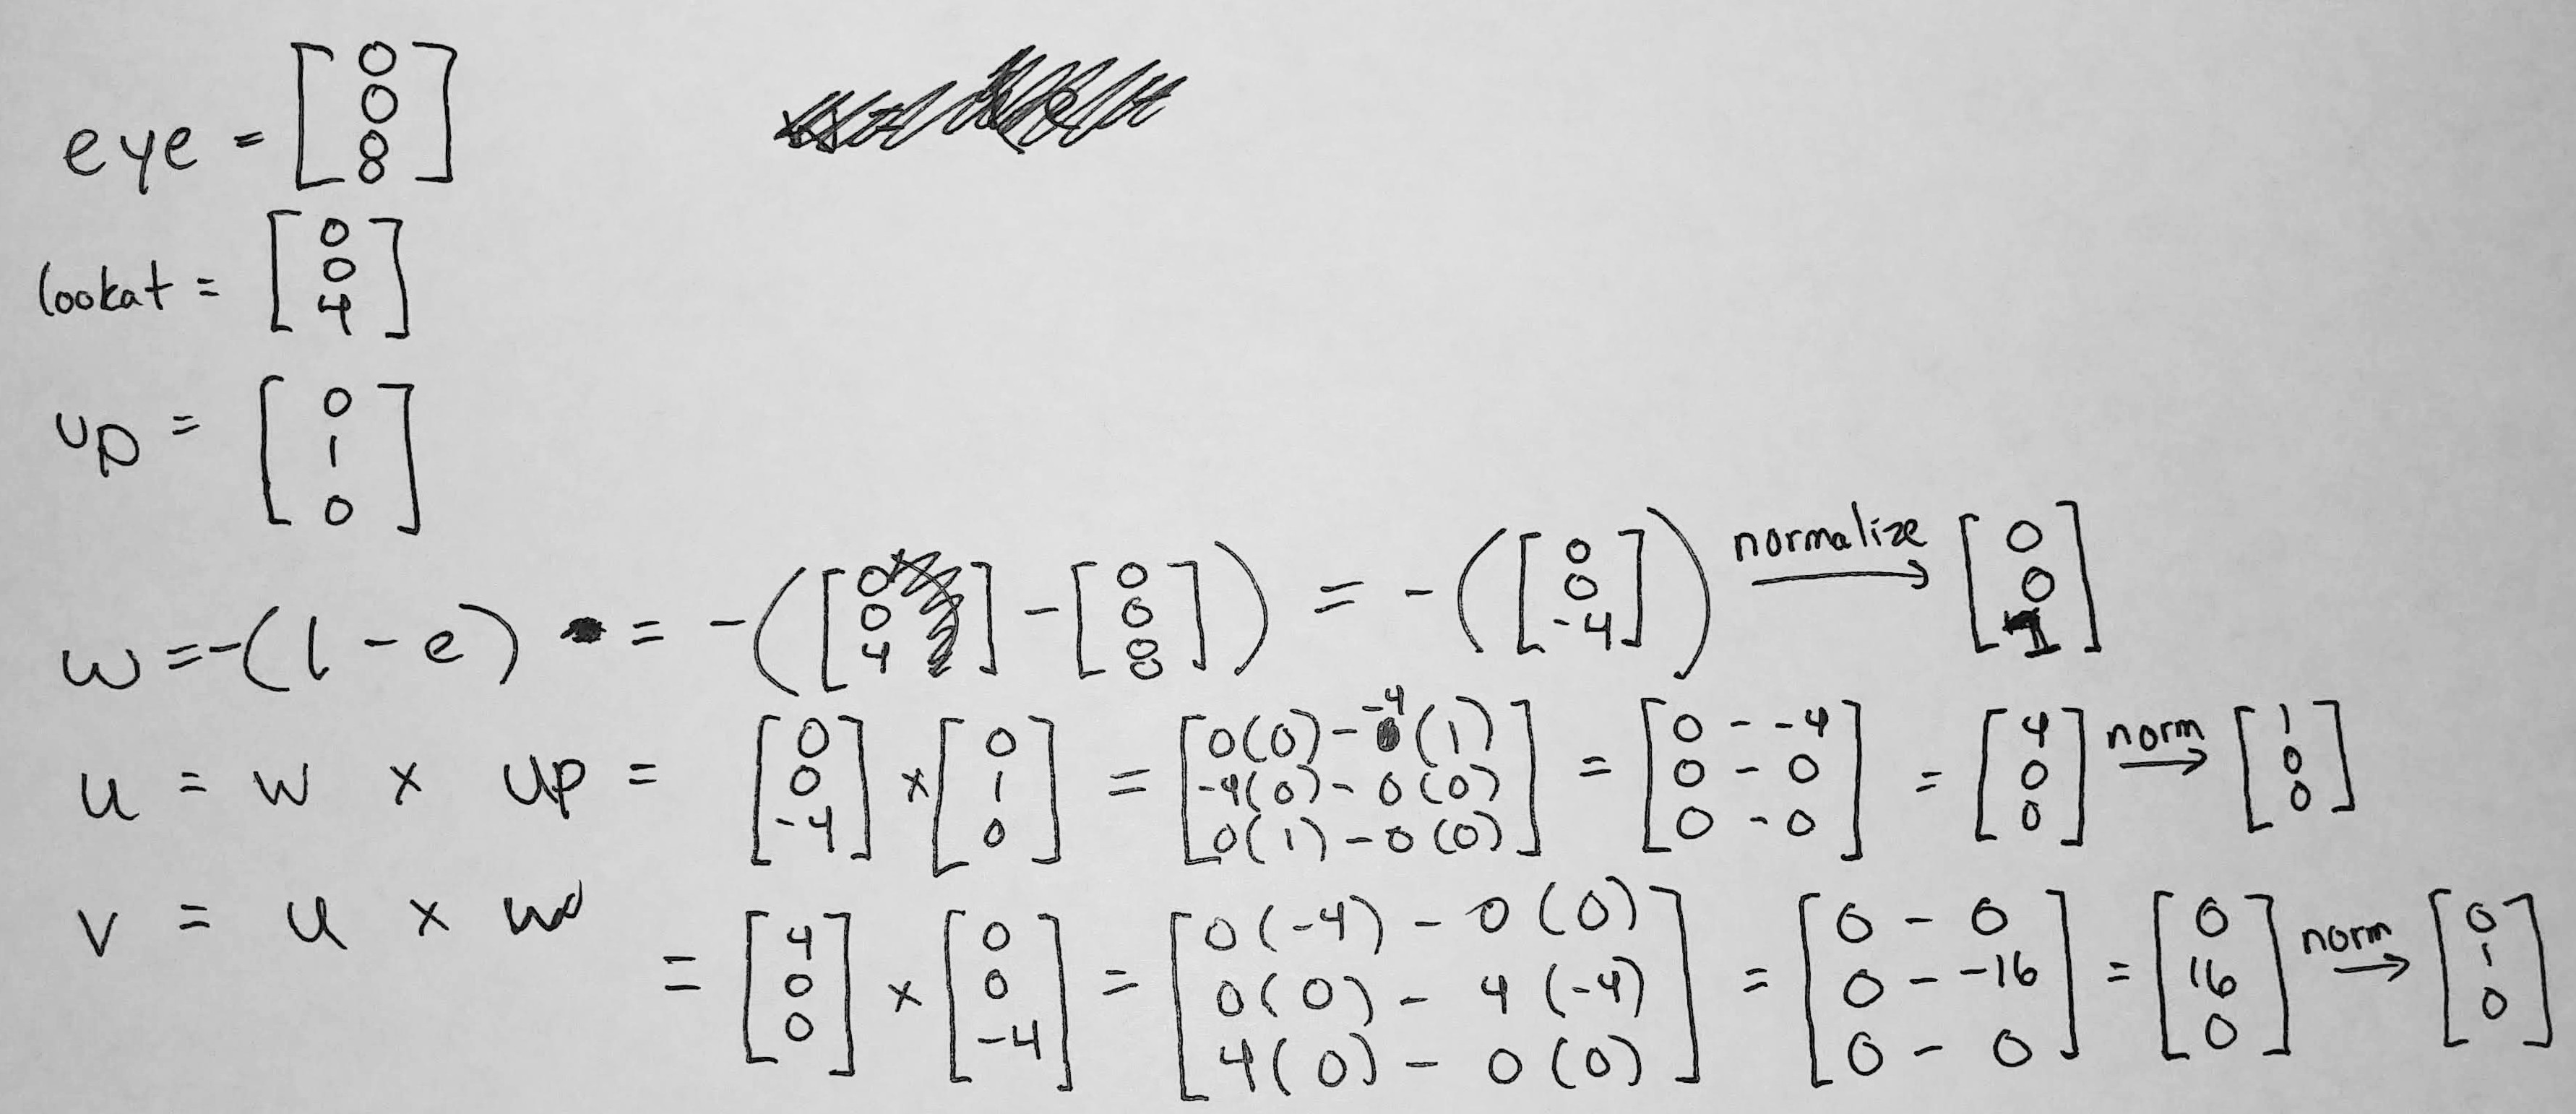 eye = [0 0 8]
lookat = [0 0 4]
up = [0 1 0]
w = -(l - e) = -([0 0 4] - [0 0 8]) = -([0 0 -4]) normalize → [0 0 1]
u = w × up = [0 0 -4] × [0 1 0] = [0(0) - -4(1) -4(0) - 0(0) 0(1) - 0(0)] = [0 - -4 0 - 0 0 - 0] = [4 0 0] norm → [1 0 0]
v = u × w = [4 0 0] × [0 0 -4] = [0(-4) - 0(0) 0(0) - 4(-4) 4(0) - 0(0)] = [0 - 0 0 - -16 0 - 0] = [0 16 0] norm → [0 1 0]